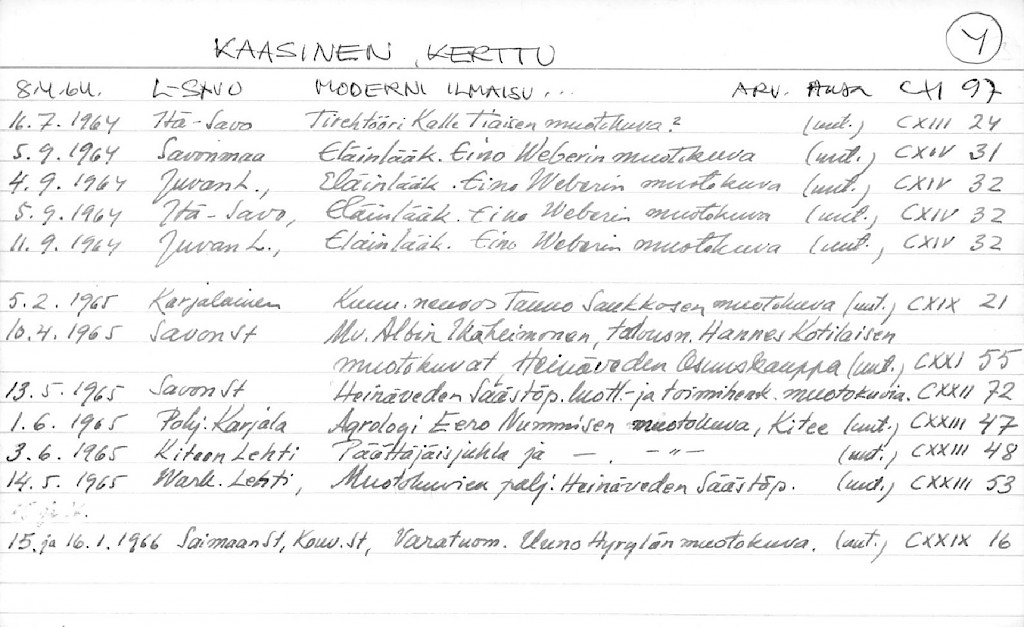 Y
KAASINEN, KERTTU
8.4.64. L-SAVO MODERNI ILMAISU... ARV. CXI 97
16.7.1964 Itä-Savo Tirehtööri Kalle Tiaisen muotokuva? (uut.) CXIII 24
5.9.1964 Savonmaa Eläinlääk. Eino Weberin muotokuva (uut.) CXIV 31
4.9.1964 Juvan L., Eläinlääk. Eino Weberin muotokuva (uut.) CXIV 32
5.9.1964 Itä-Savo, Eläinlääk. Eino Weberin muotokuva (uut.) CXIV 32
11.9.1964 Juvan L., Eläinlääk. Eino Weberin muotokuva (uut., CXIV 32
5.2.1965 Karjalainen Kunn.neuvos Tauno Saukkosen muotokuva (uut.) CXIX 21
10.4.1965 Savon St Mv. Albin Ikäheimonen, talousn. Hannes Kotilaisen
muotokuvat, Heinäveden Osuuskauppa (uut.) CXXI 55
13.5.1965 Savon St Heinäveden Säästöp. luott.- ja toimihenk. muotokuvia. CXXII 72
1.6.1965 Pohj. Karjala Agrologi Eero Nummisen muotokuva, Kitee (uut.) CXXIII 47
3.6.1965 Kiteen Lehti Päättäjäisjuhla ja — . -"- (uut.) CXXIII 48
14.5.1965 Wark. Lehti, Muotokuvien palj. Heinäveden Säästöp. (uut.) CXXIII 53
15. ja 16.
15. ja 16.1.1966 Saimaan St, Kouv. St, Varatuom. Uuno Hyrylän muotokuva. (uut.) CXXIX 16